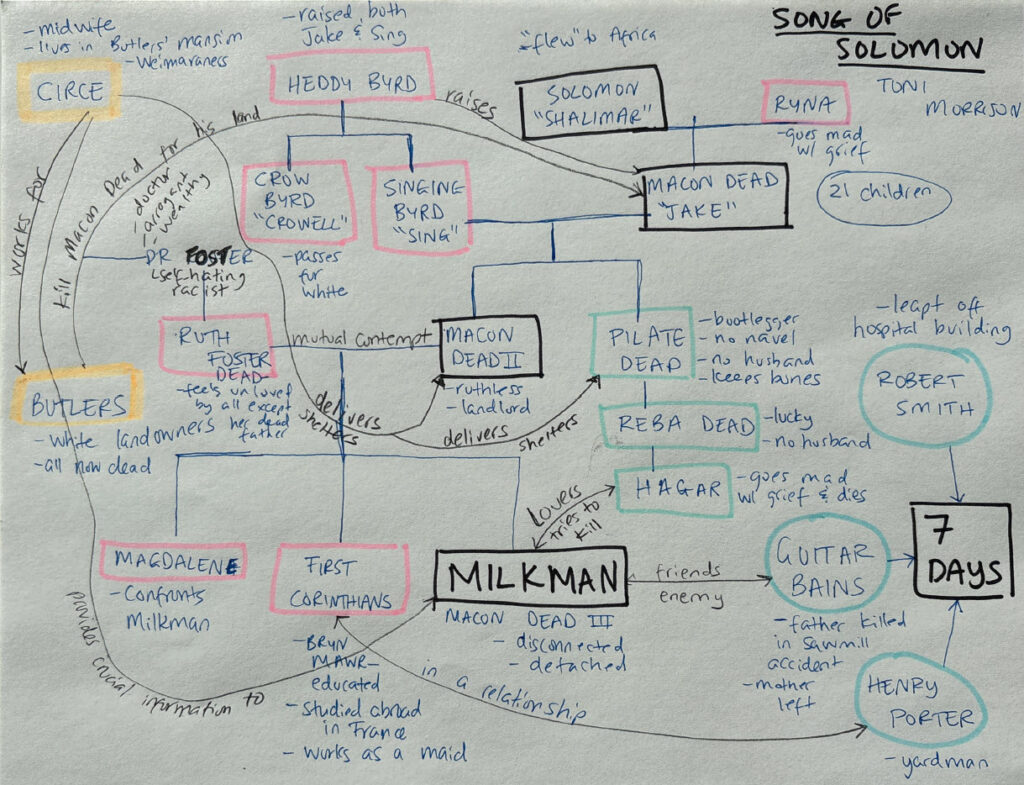 SONG OF
SOLOMON
TONI
MORRISON
- midwife
- lives in Butlers' mansion
- Weimaraners
CIRCE
- raised both
Jake & Sing
HEDDY BYRD
raises
"flew" to Africa
SOLOMON
"SHALIMAR"
RYNA
- goes mad
w/ grief
21 children
CROW
BYRD
"CROWELL"
- passes
for
white
SINGING
BYRD
"SING"
MACON DEAD
"JAKE"
works for
kill Macon Dead for his land
- doctor
- arrogant
- wealthy
DR FOSTER
self-hating
racist
RUTH
FOSTER
DEAD
- feels unloved
by all except
her dead
father
mutual contempt
MACON
DEAD II
- ruthless
- landlord
PILATE
DEAD
- bootlegger
- no navel
- no husband
- keeps bones
- leapt off
hospital building
ROBERT
SMITH
BUTLERS
- white landowners
- all now dead
delivers
shelters
delivers
shelters
REBA DEAD
- lucky
- no husband
HAGAR
- goes mad
w/ grief & dies
Lovers
tries to
kill
MAGDALENE
- Confronts
Milkman
FIRST
CORINTHIANS
- BRYN
MAWR-
educated
- studied abroad
in France
- works as a maid
MILKMAN
MACON DEAD III
- disconnected
- detached
friends
enemy
GUITAR
BAINS
- father killed
in sawmill
accident
- mother
left
7
DAYS
provides crucial information to
in a relationship
HENRY
PORTER
- yardman